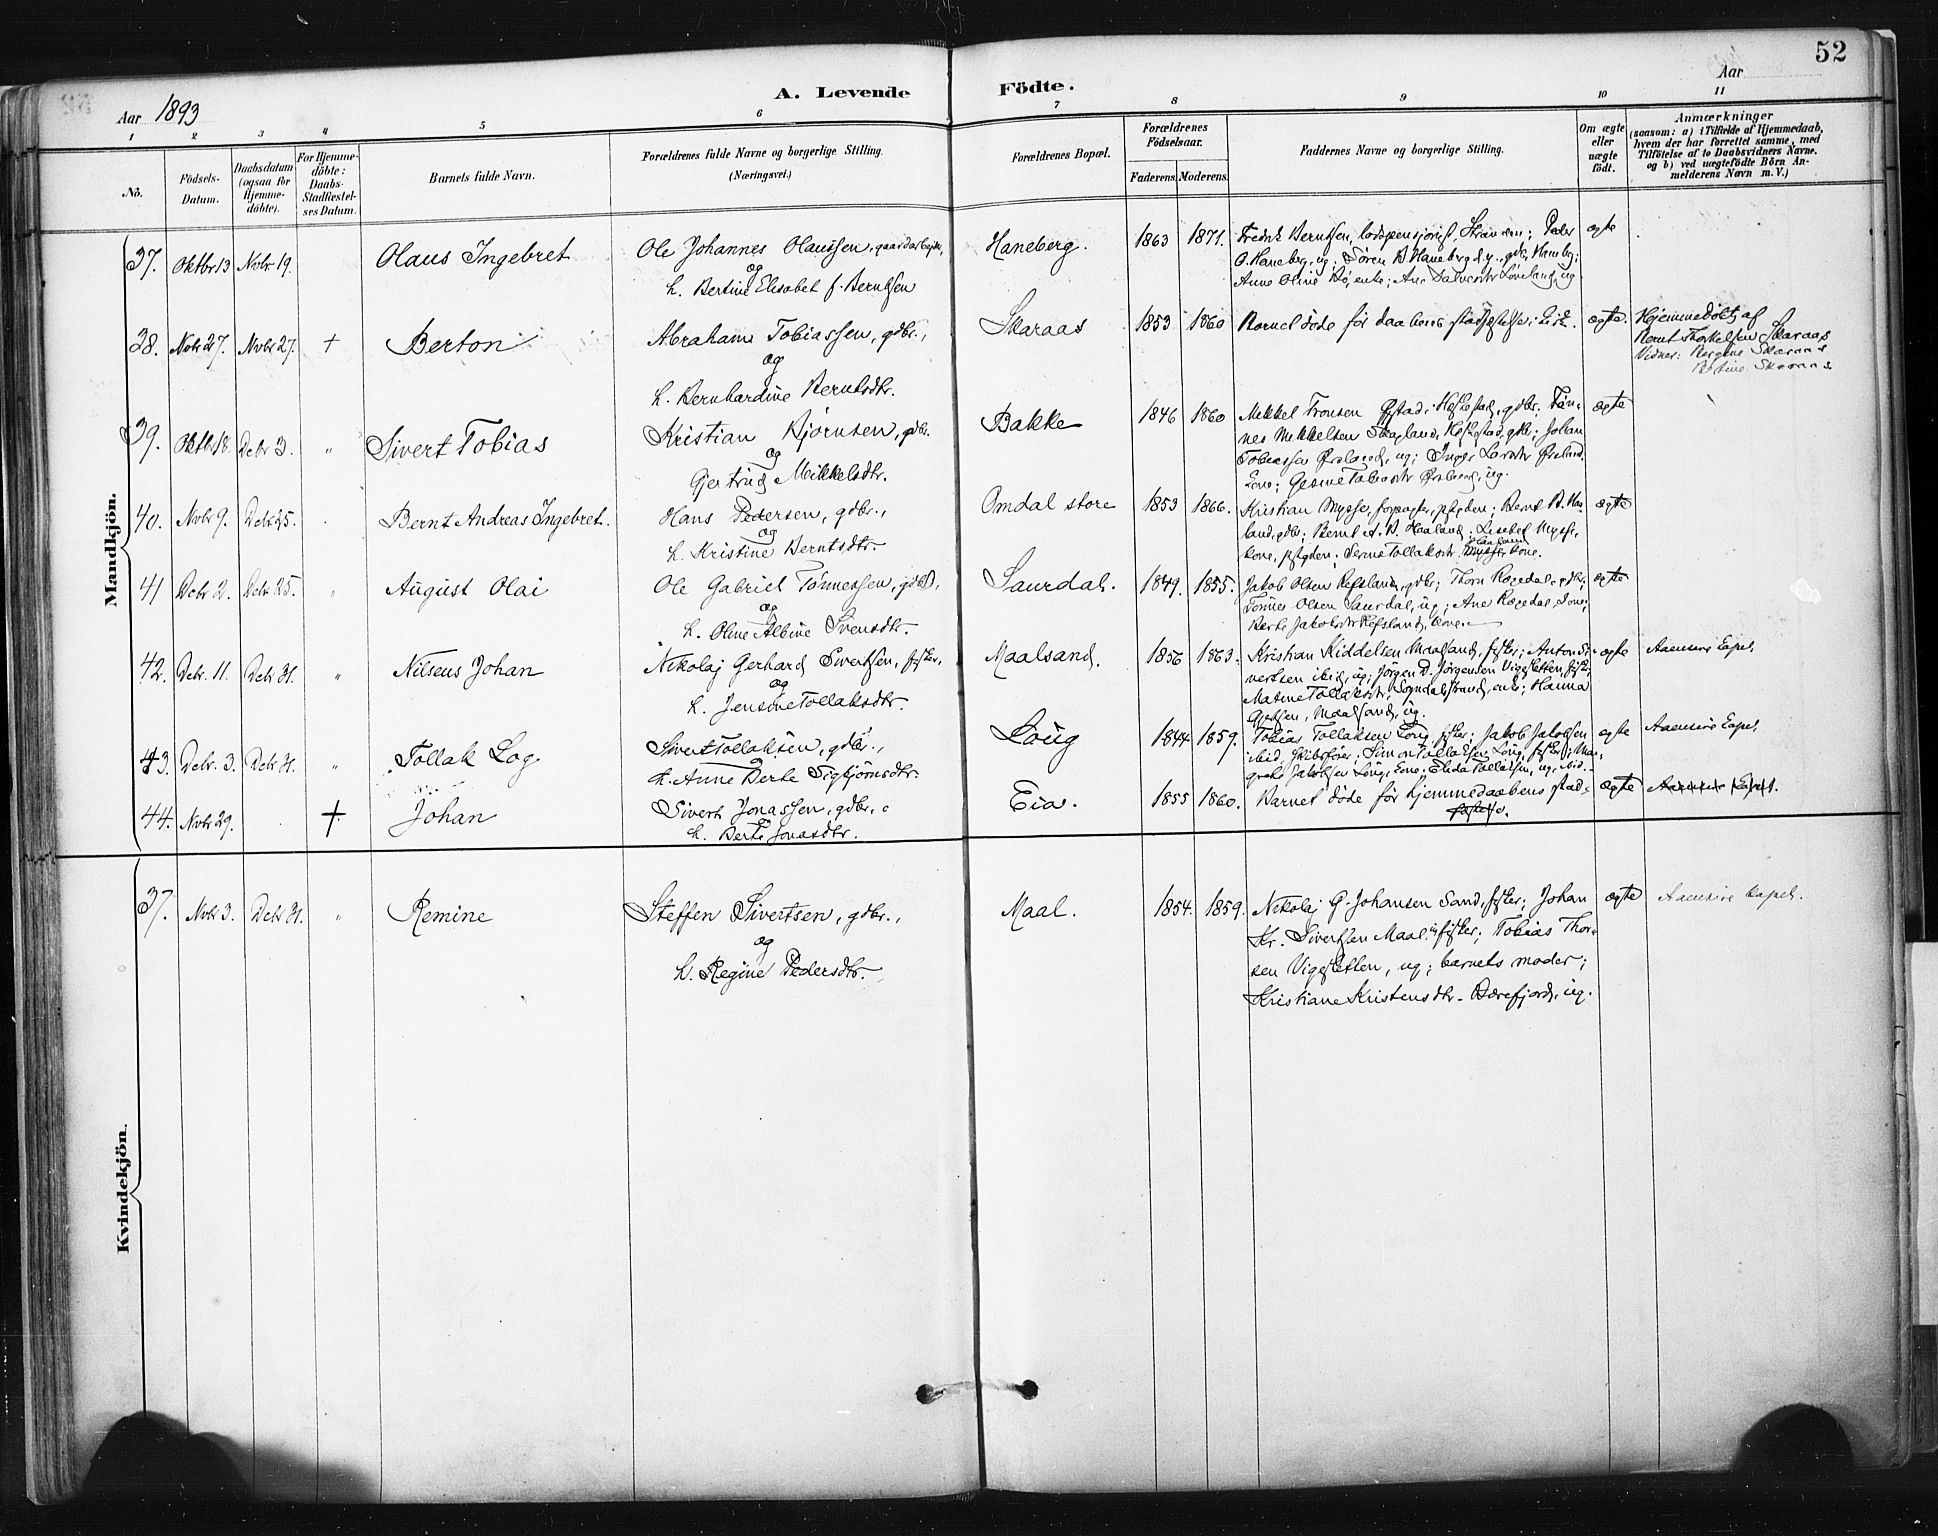 52
Aar 1893
A. Levende Födte.
Aar
1 2 3 4 5 6 7 8 9 10 11
No.
Födsels-
Datum.
Daabsdatum
(ogsaa for
Hjemme-
döbte).
For Hjemme-
döbte:
Daabs-
Stadfæstel-
ses Datum.
Barnets fulde Navn.
Forældrenes fulde Navne og borgerlige Stilling.
(Næringsvei.)
Forældrenes Bopæl.
Forældrenes
Födselsaar.
Faderens. Moderens.
Faddernes Navne og borgerlige Stilling.
Om ægte
eller
uægte
födt.
Anmærkninger
(saasom: a) i Tilfælde af Hjemmedaab,
hvem der har forrettet samme, med
Tilföielse af to Daabsvidners Navne.
og b) ved uægtefödte Börn An-
melderens Navn m. V.)
Mandkjön.
37. Oktbr 13 Nvbr 19. Olaus Ingebret
Ole Johannes Olaussen, gaardarbeider,
og
h. Bertine Elisabet f. Berntsen
Haneberg. 1863 1871.
Fredrik Berntsen, lodspensjonist, Stranden; Peder
O. Haneberg, ug; Søren B. Haneberg d.y., gdbr, Haneberg;
Anne Oline Bø, enke; Ane Løveland, ug
ægte
38. Nvbr 27. Nvbr 27. + Berton
Abraham Tobiassen, gdbr.,
og
h. Bernhardine Berntsdtr.
Skaraas 1853 1860
Barnet døde før daabens stadfæstelse i kirke.
ægte
Hjemmedøbt af
Bernt Thorkelsen Skaraas
Vidner: Bergine Skaraas
Bertine Skaraas
39. Oktbr 18. Decbr 3. " Sivert Tobias
Kristian Bjørnsen, gdbr.
og
Gjertrud Mikkelsdtr.
Bakke 1846 1860
Mikkel Tronsen Ørstad, Hefstestad, gdbr, Tøn-
nes Mikkelsen Skagland, Hefstestad, gdbr; Johan
Tobiassen Ørsland, ug; Inger Larsdtr Ørsland,
kone; Gesine Tobiasdtr Ørsland, ug.
ægte
40. Nvbr 9. Decbr 25. Bernt Andreas Ingebret.
Hans Pedersen, gdbr.,
og
h. Kristine Berntsdtr.
Omdal store 1853 1866.
Kristian Mysse, forpagter, pstgden; Bernt B. Haa-
land, gdbr; Bernt A. B. Haaland; Lisebet Mysse,
kone, pstgden; Serine Tollaksdtr. Haaland kone.
ægte
41 Decbr 2. Decbr 25. " August Olai
Ole Gabriel Tønnessen, gdbr,
og
h. Oline Albine Svensdtr.
Saurdal. 1849. 1855.
Jakob Olsen Refsland, gdbr; Thorn Rægedal, gdbr;
Tønnes Olsen Saurdal, ug; Ane Rægedal, kone;
Berte Jakobsdtr Refsland, kone.
ægte
42. Decbr. 11. Decbr 31. " Nilseus Johan
Nikolaj Gerhard Sivertsen, fisker,
og
h. Jensine Tollaksdtr.
Maalsand. 1856 1863.
Kristian Kiddelsen Maalsand, fisker; Anton Si-
vertsen ibid, ug; Jørgen D. Jørgensen Vigesletten, fisker,
Matine Tollaksdtr, Sogndalstrand, enke; Hanna
Maalsand, ug.
ægte Aaensire Capel.
43. Decbr. 3. Decbr 31. " Tollak Log
Sivert Tollaksen, gdbr.,
og
h. Anne Berte Sigbjørnsdtr.
Loug 1844 1859.
Tobias Tollaksen Loug, fisker; Jakob Jakobsen
ibid, skibsfører; Simon Tollaksen Loug, fisker; Mar-
grete Jakobsen Loug, kone; Elida Tollaksen, ug, ibid.
ægte Aaensire Capel.
44. Nvbr 29. + Johan
Sivert Jonassen, gdbr. o
h. Berte Jonasdtr.
Eia. 1855 1860.
Barnet døde før hjemmedaabens stad-
fæstelse.
ægte Aaensire Capel.
Kvindekjön.
37. Nvbr 3. Decbr 31. " Remine
Steffen Sivertsen, gdbr.,
og
h. Regine Pedersdtr.
Maal. 1854. 1859.
Nikolaj G. Johansen Sand, fisker; Johan
Kr. Sivertsen Maal, fisker; Tobias Thor-
sen Vigesletten, ug; barnets moder;
Kristiane Kristensdtr. Bærefjord, ug.
ægte Aaensire Kapel.